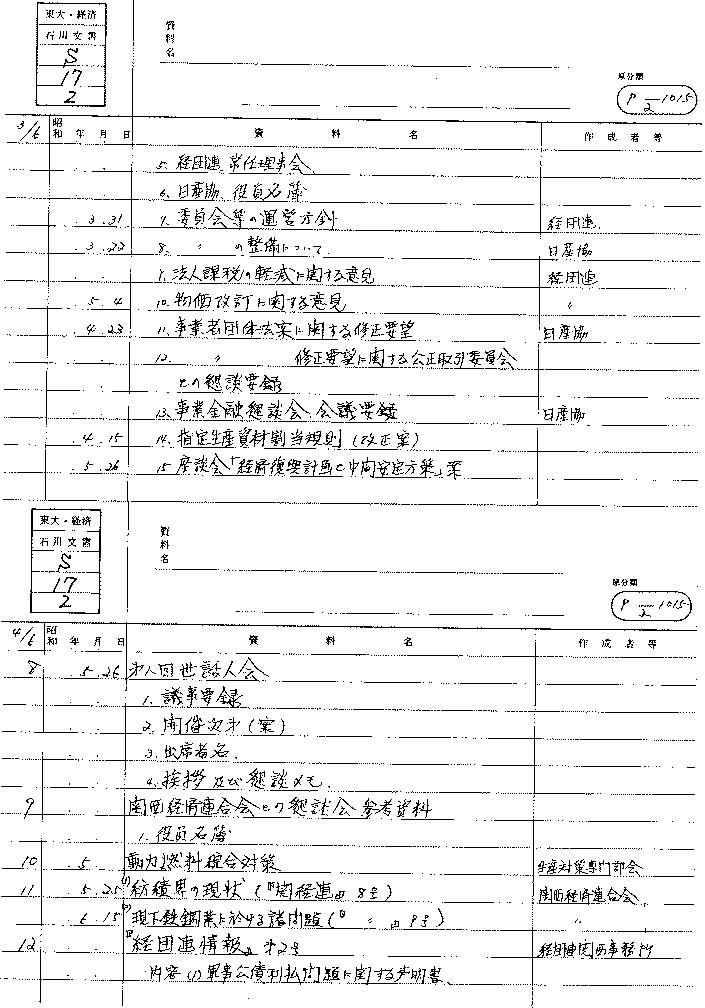 東大・経済
石川文書
S
17
2
資料名
原分類
P 2-1015
3/6 昭和 年 月 日 資料名 作成者等
5. 経団連 常任理事会
6. 日産協 役員名簿
3.31 7. 委員会等の運営方針 経団連
3.22 8. 〃 の整備について 日産協
9. 法人課税の軽減に関する意見 経団連
5.4 10. 物価改訂に関する意見 〃
4.23 11. 事業者団体法案に関する修正要望 日産協
12. 〃 修正要望に関する公正取引委員会
との懇談要録
13. 事業金融懇談会 会議要録 日産協
4.15 14. 指定生産資材割当規則(改正案)
5.26 15. 座談会「経済復興計画と中間安定方策」案
東大・経済
石川文書
S
17
2
資料名
原分類
P 2-1015
4/6 昭和 年 月 日 資料名 作成者等
8 5.26 才八回世話人会
1. 議事要録
2. 開催次才(案)
3. 出席者名
4. 挨拶及び懇談メモ
9 関西経済連合会との懇談会 参考資料
1. 役員名簿
10 5. 動力燃料綜合対策 生産対策専門部会
11 5.25 (1) 紡績界の現状(『関経連』8号) 関西経済連合会
6.15 (2) 現下鉄鋼業に於ける諸問題(『 〃 』9号) 〃
12 『経団連情報』才2号 経団連関西事務所
内容 (1) 軍事公債利払問題に関する声明書